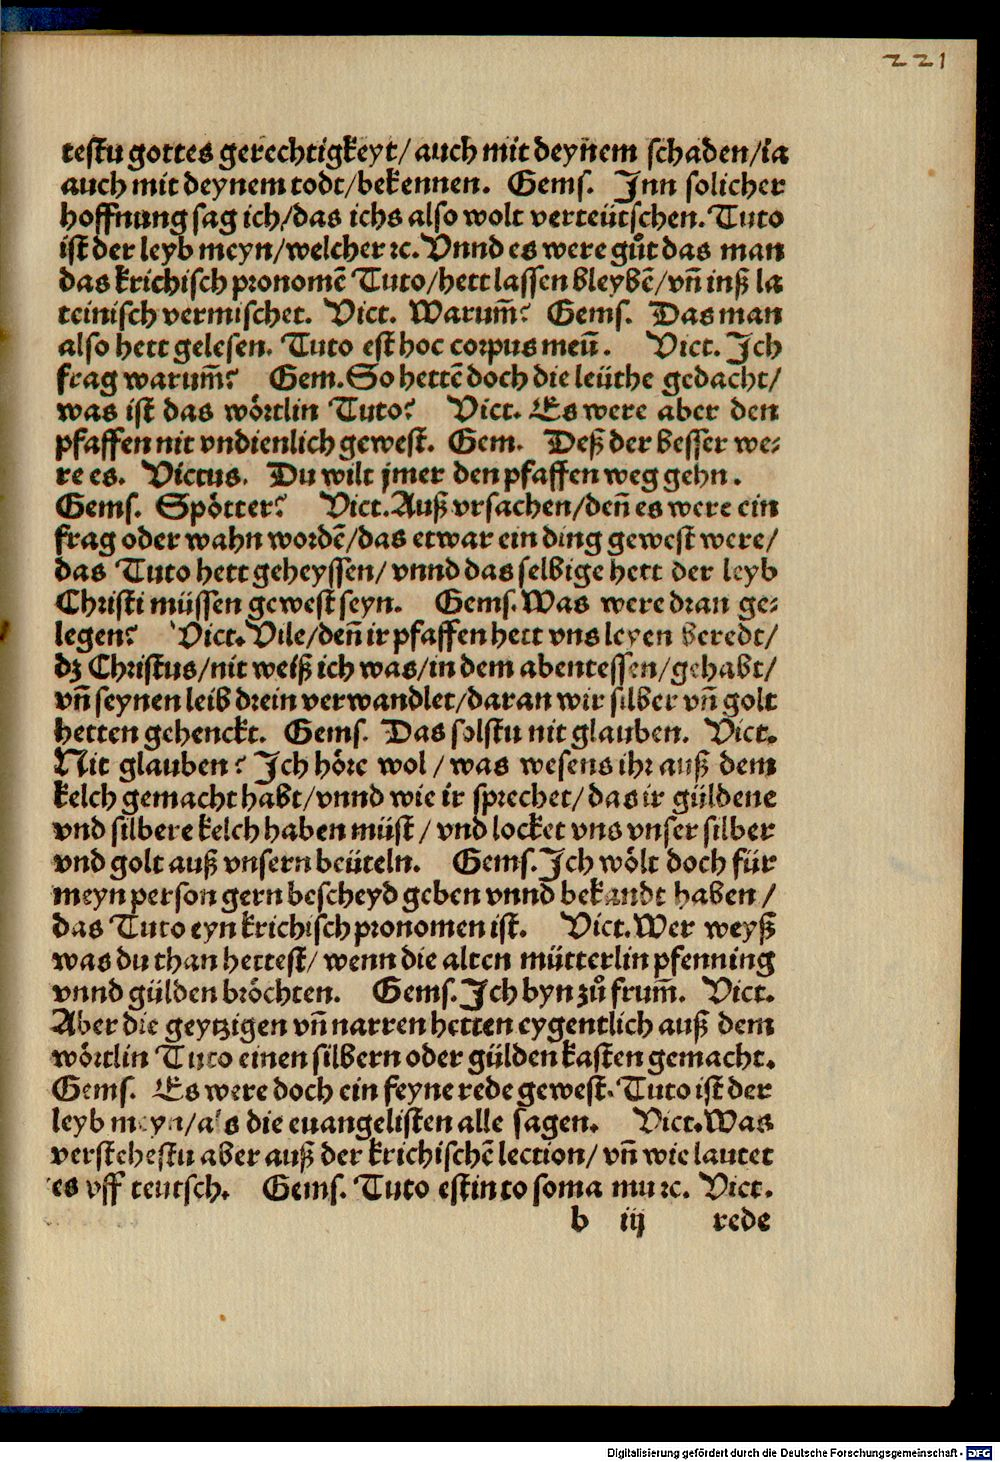 221
testu gottes gerechtigkeyt/ auch mit deynem schaden/ia
auch mit deynem todt/bekennen. Gems. Jnn solicher
hoffnung sag ich/das ichs also wolt verteütschen. Tuto
ist der leyb meyn/welcher ꝛc. Vnnd es were gůt das man
das krichisch pronomē Tuto/hett lassen bleybē/vn̄ inß la
teinisch vermischet. Vict. Warum̄? Gems. Das man
also hett gelesen. Tuto est hoc corpus meū. Vict. Ich
frag warum̄? Gem. So hettē doch die leüthe gedacht/
was ist das wörtlin Tuto? Vict. Es were aber den
pfaffen nit vndienlich gewest. Gem. Deß der besser we⸗
re es. Victus. Du wilt jmer den pfaffen weg gehn.
Gems. Spötter? Vict. Auß vrsachen/den̄ es were ein
frag oder wahn wordē/das etwar ein ding gewest were/
das Tuto hett geheyssen/ vnnd das selbige hett der leyb
Christi müssen gewest seyn. Gems. Was were dran ge⸗
legen? Vict. Vile/den̄ ir pfaffen hett vns leyen beredt/
dz Christus/nit weiß ich was/in dem abentessen/gehabt/
vn̄ seynen leib drein verwandlet/daran wir silber vn̄ golt
hetten gehenckt. Gems. Das solstu nit glauben. Vict.
Nit glauben? Ich höre wol / was wesens ihr auß dem
kelch gemacht habt/vnnd wie ir sprechet/ das ir güldene
vnd silbere kelch haben müst / vnd locket vns vnser silber
vnd golt auß vnsern beüteln. Gems. Ich wölt doch für
meyn person gern bescheyd geben vnnd bekandt haben /
das Tuto eyn krichisch pronomen ist. Vict. Wer weyß
was du than hettest/ wenn die alten mütterlin pfenning
vnnd gülden bröchten. Gems. Ich byn zů frum̄. Vict.
Aber die geytzigen vn̄ narren hetten eygentlich auß dem
wörtlin Tuto einen silbern oder gülden kasten gemacht.
Gems. Es were doch ein feyne rede gewest. Tuto ist der
leyb meyn/als die euangelisten alle sagen. Vict. Was
verstehestu aber auß der krichischē lection/ vn̄ wie lautet
es vff teutsch. Gems. Tuto estin to soma mu ꝛc. Vict.
b iij rede
Digitalisierung gefördert durch die Deutsche Forschungsgemeinschaft - DFG